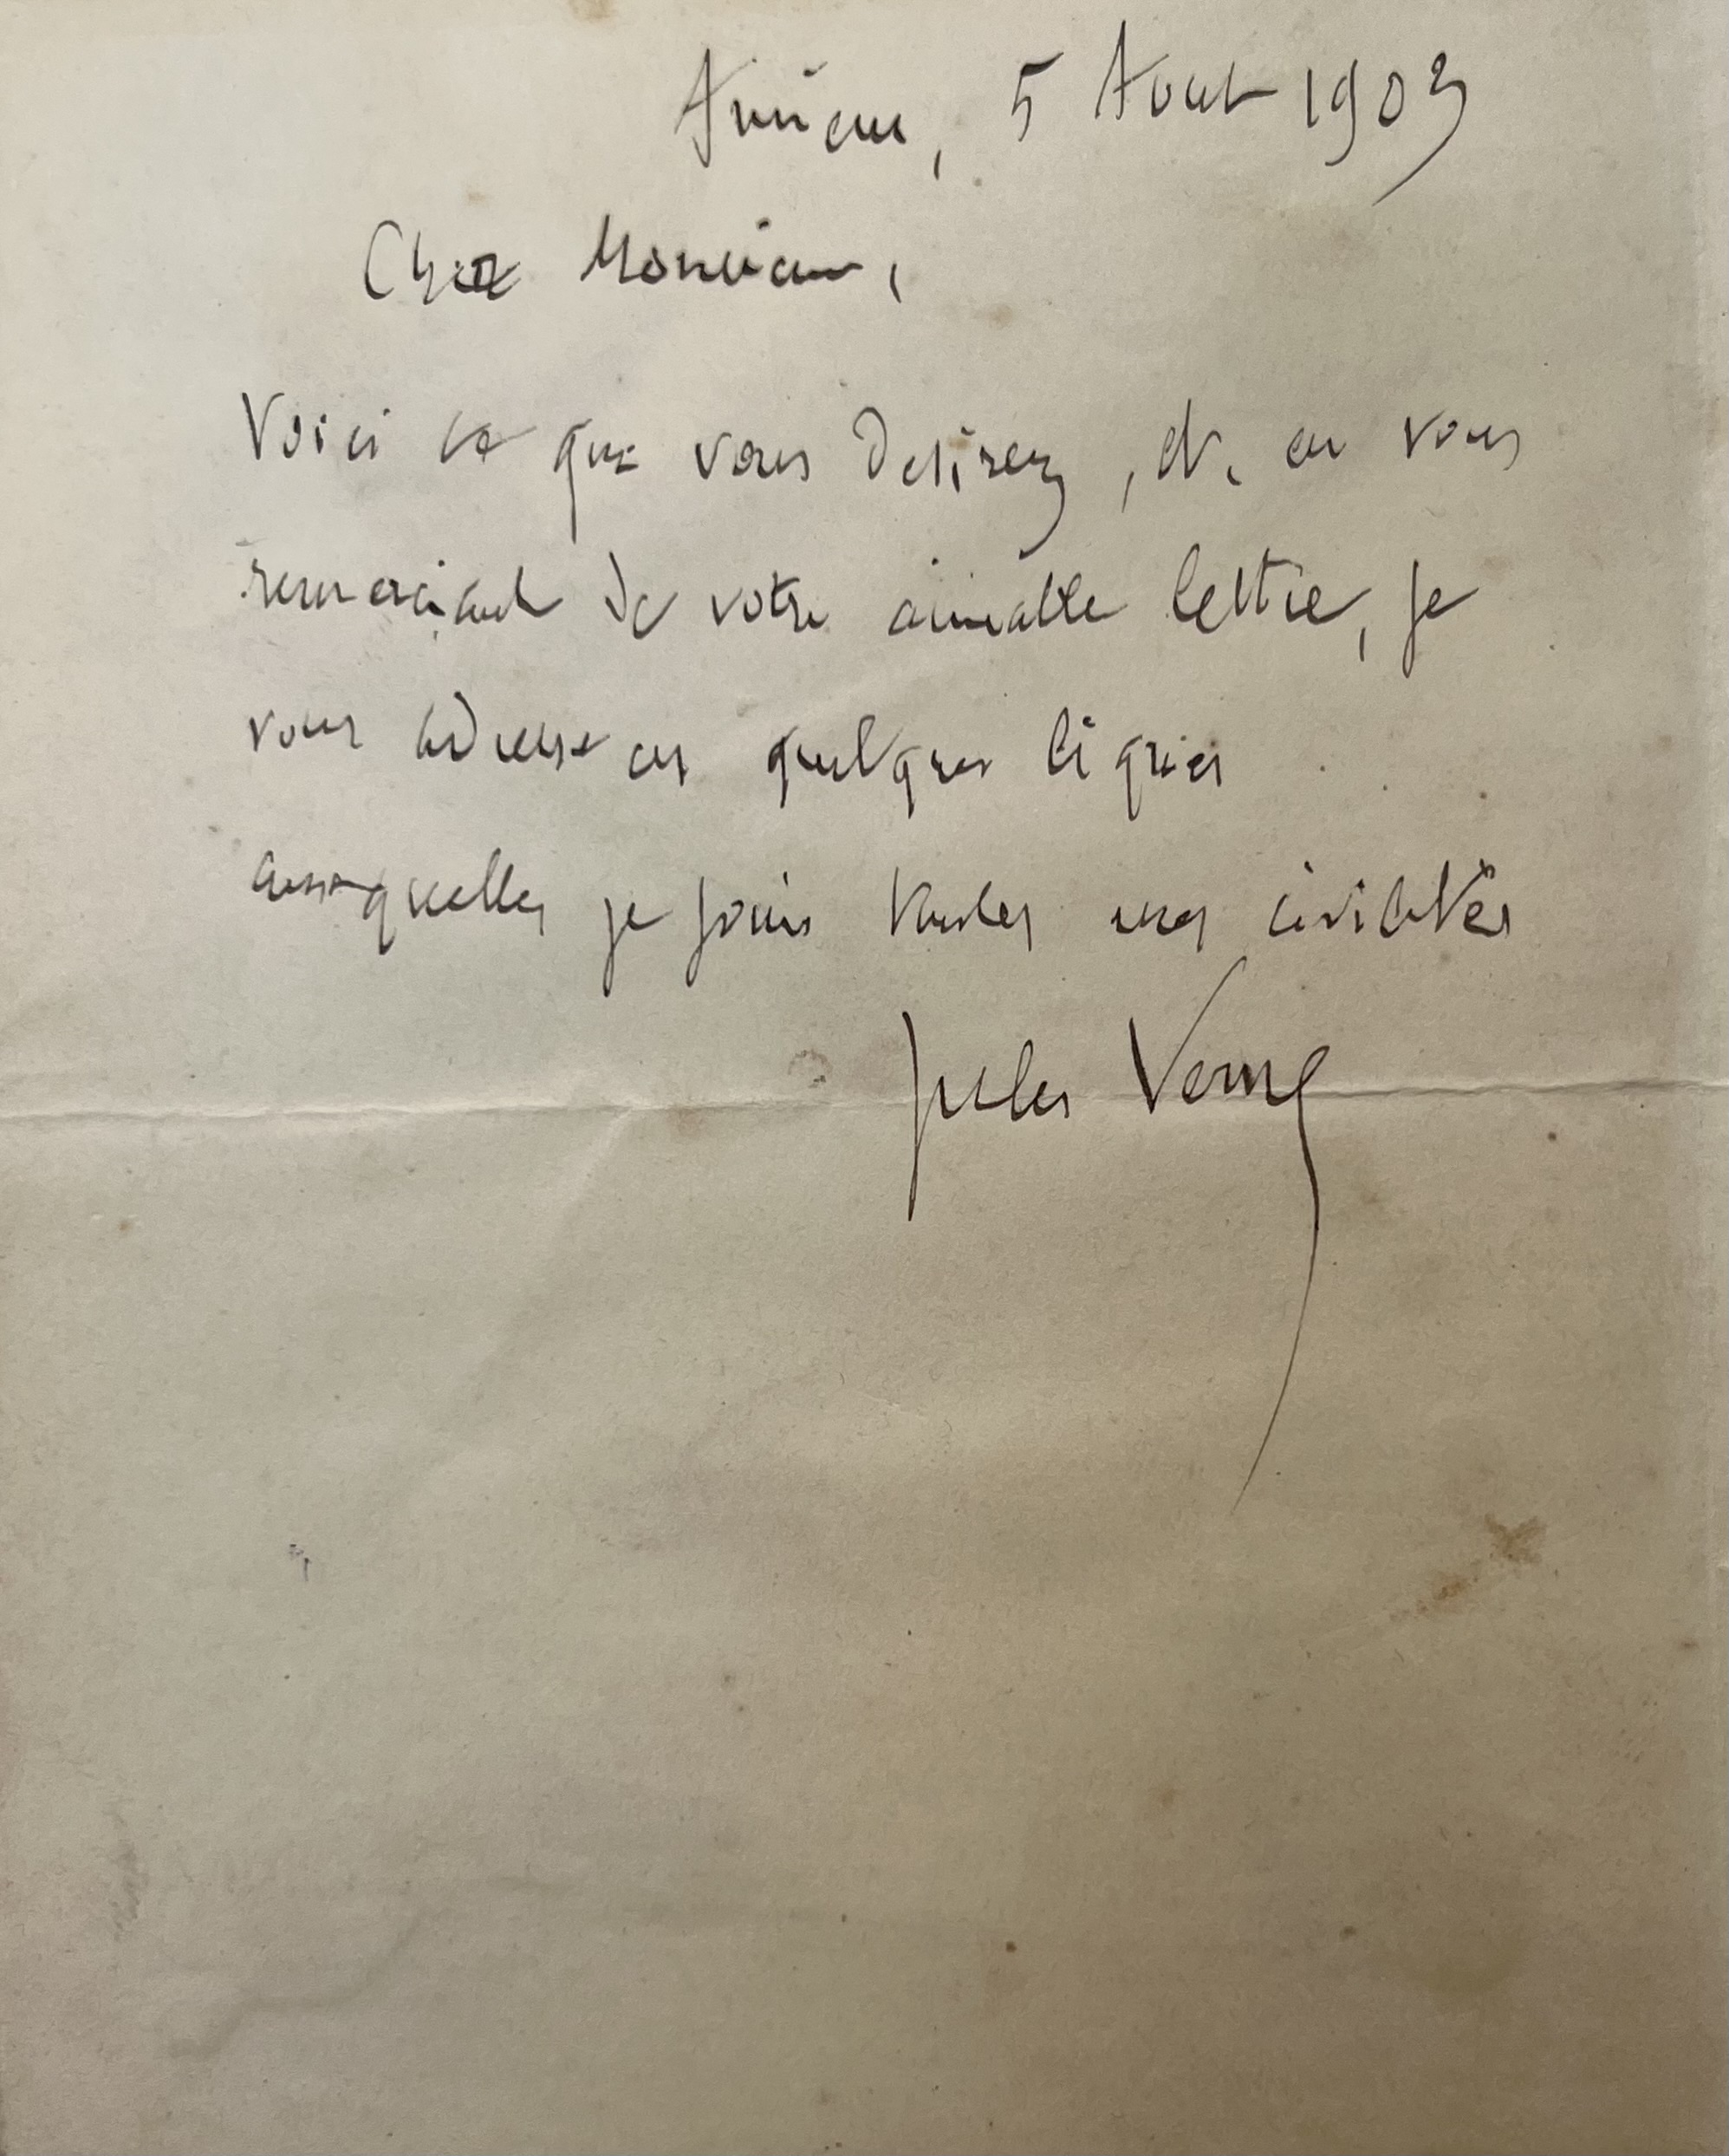 Amiens, 5 Aout 1903
Cher Monsieur,
Voici ce que vous desirez, et, en vous
remerciant de votre aimable lettre, je
vous adresse ces quelques lignes
auxquelles je joins toutes mes civilités
Jules Verne